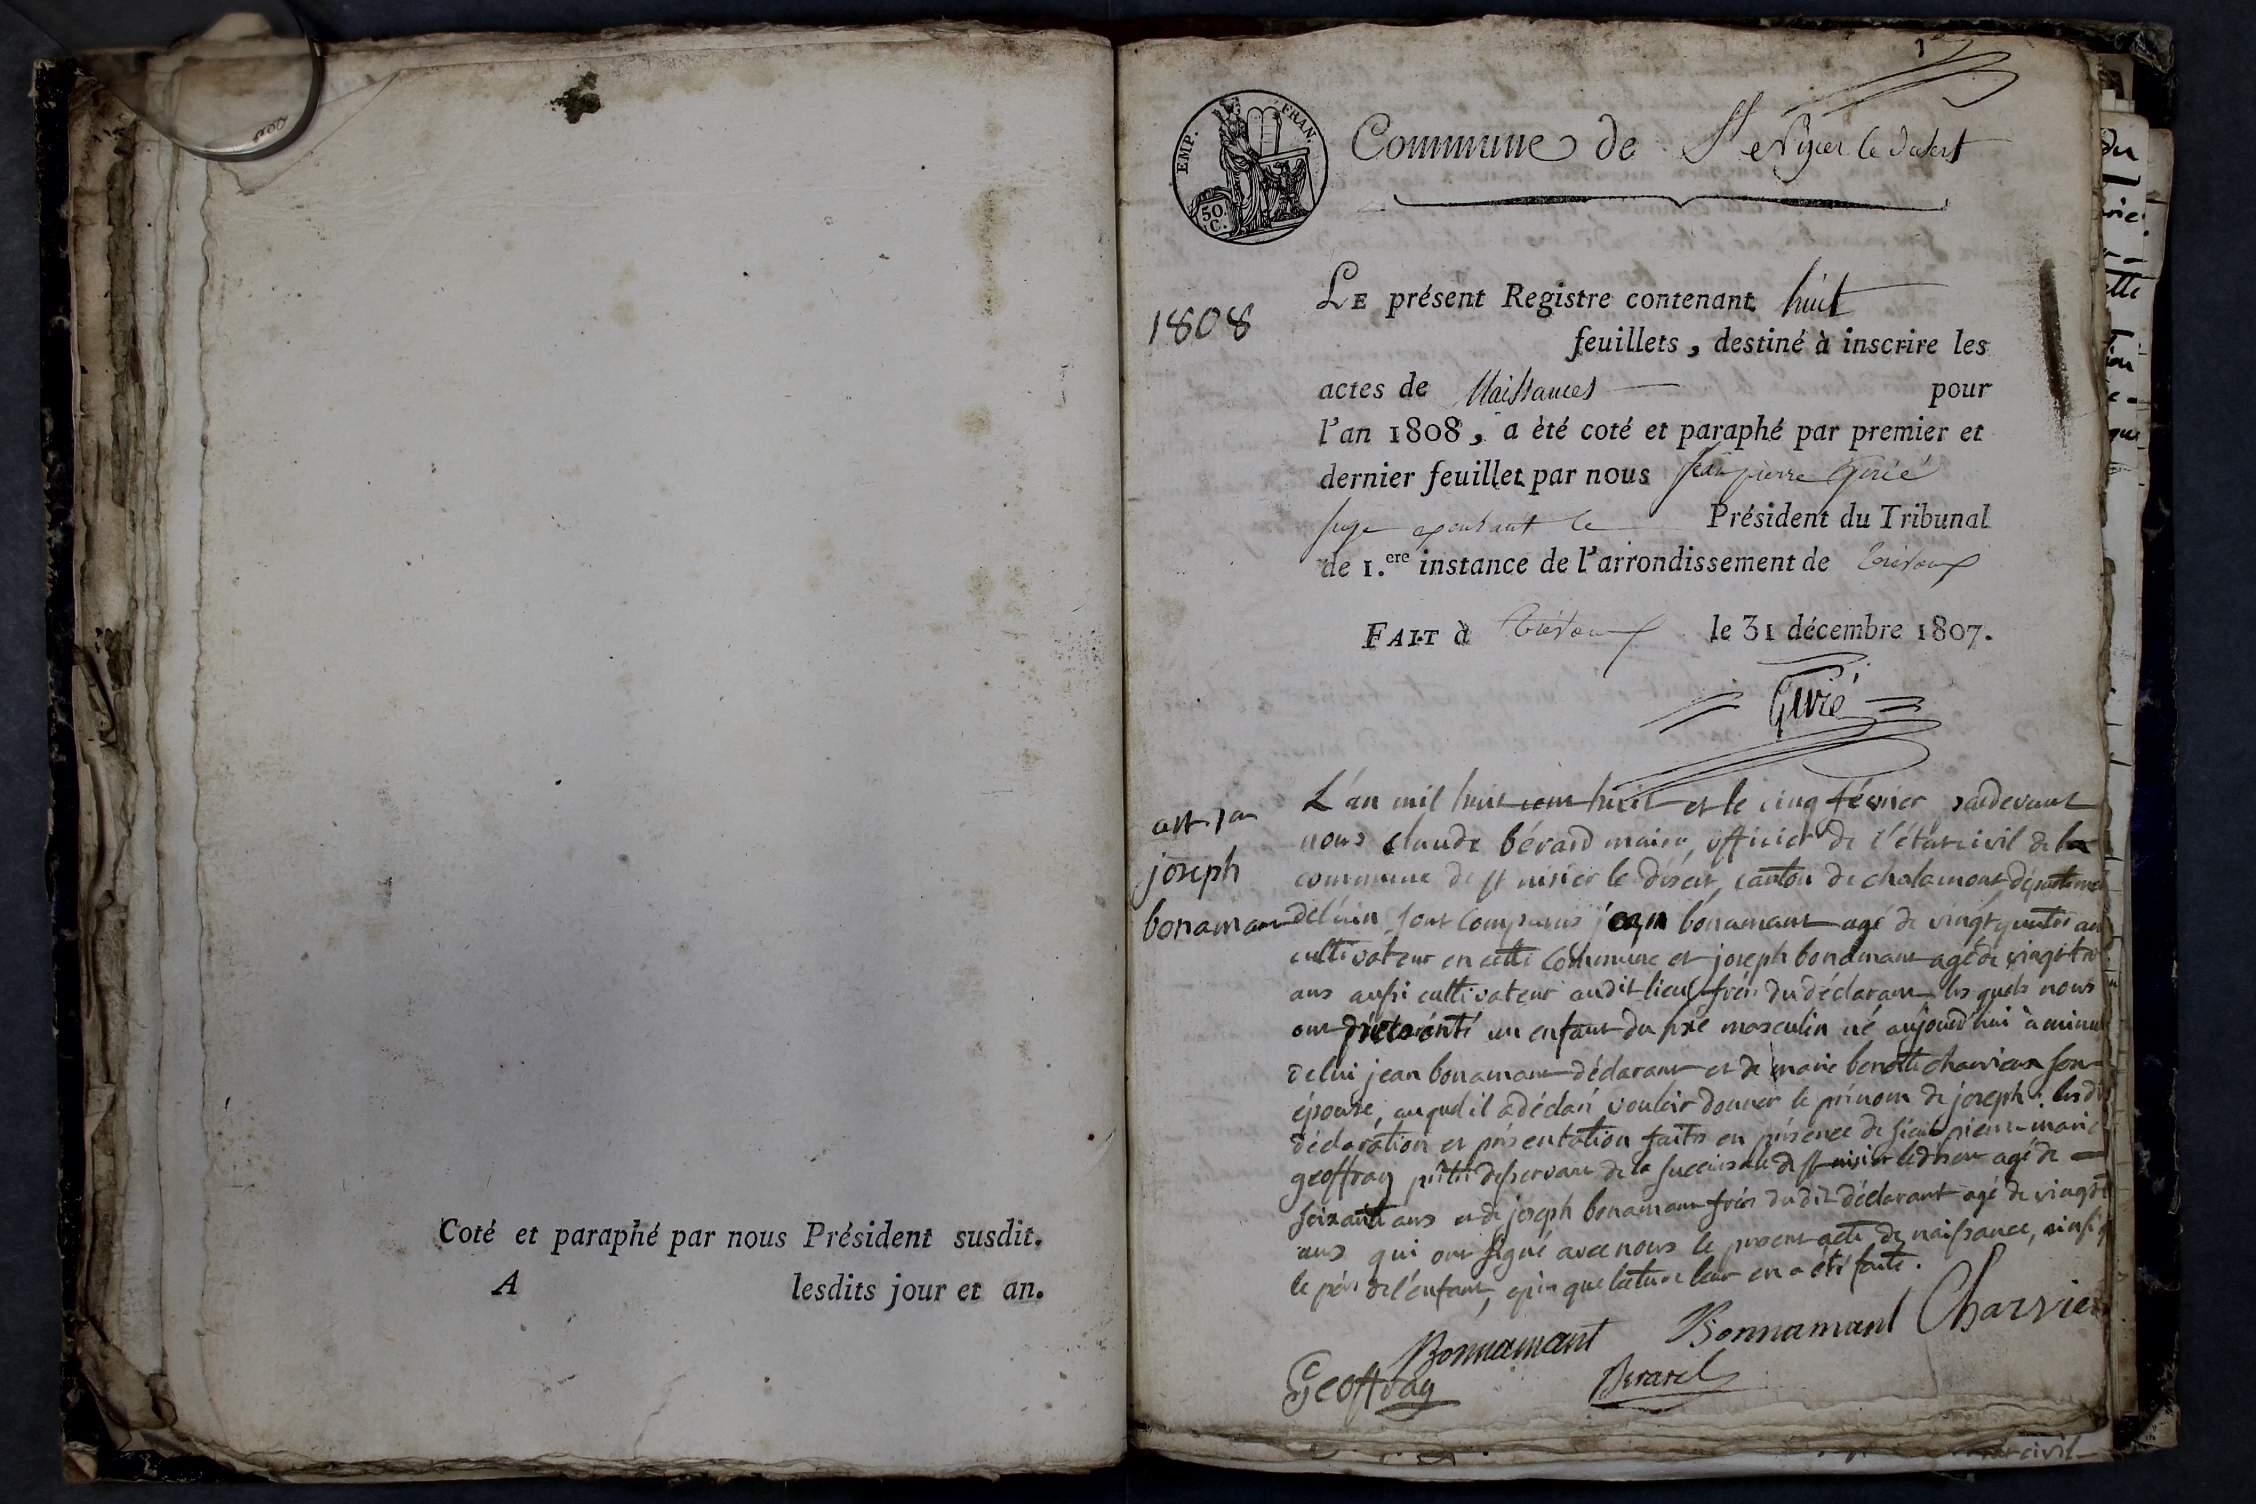 Coté et paraphé par nous Président susdit.
A lesdits jour et an.
EMP. FRAN.
50.
C.
Commune de St Nizier le desert
1808
LE présent Registre contenant huit
feuillets, destiné à inscrire les
actes de Naissances pour
l'an 1808, a été coté et paraphé par premier et
dernier feuillet par nous Jean pierre Girié
juge Président du Tribunal
de 1.ere instance de l'arrondissement de Trévoux
FAIT à Trévoux le 31 décembre 1807.
Girié
joseph
bonamant
L'an mil huit cent huit et le cinq février pardevant
nous claude bérard maire, officier de l'état civil de la
commune de st nisier le désert, canton de chalamont département
de l'ain sont comparus jean bonamant agé de vingt quatre ans
cultivateur en cette commune et joseph bonamant agé de vingt
ans aussi cultivateur audit lieu frère du déclarant les quels nous
ont présenté un enfant du sexe masculin né aujourd'hui à minuit
de lui jean bonamant déclarant et de marie benoîte charvieux son
épouse, auquel il a déclaré vouloir donner le prénom de joseph. les dites
déclaration et présentation faites en présence de sieur pierre marie
geoffray prêtre desservant de la succursale de st nisier le désert agé de
soixante ans et de joseph bonamant frère du dit déclarant agé de vingt
ans qui ont signé avec nous le present acte de naissance, ainsi que
le père de l'enfant, après que lecture leur en a été faite.
Bonnamant Bonnamant Charvieu
Geoffray Berard